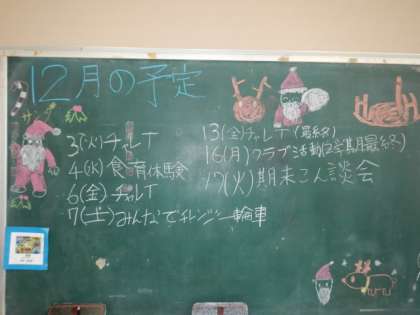 12月の予定
サンタ
3(火)チャレT
4(水)食育体験
6(金)チャレT
7(土)みんなでチャレンジ一輪車
13(金)チャレT(最終)
16(月)クラブ活動(2学期最終)
17(火)期末こん談会